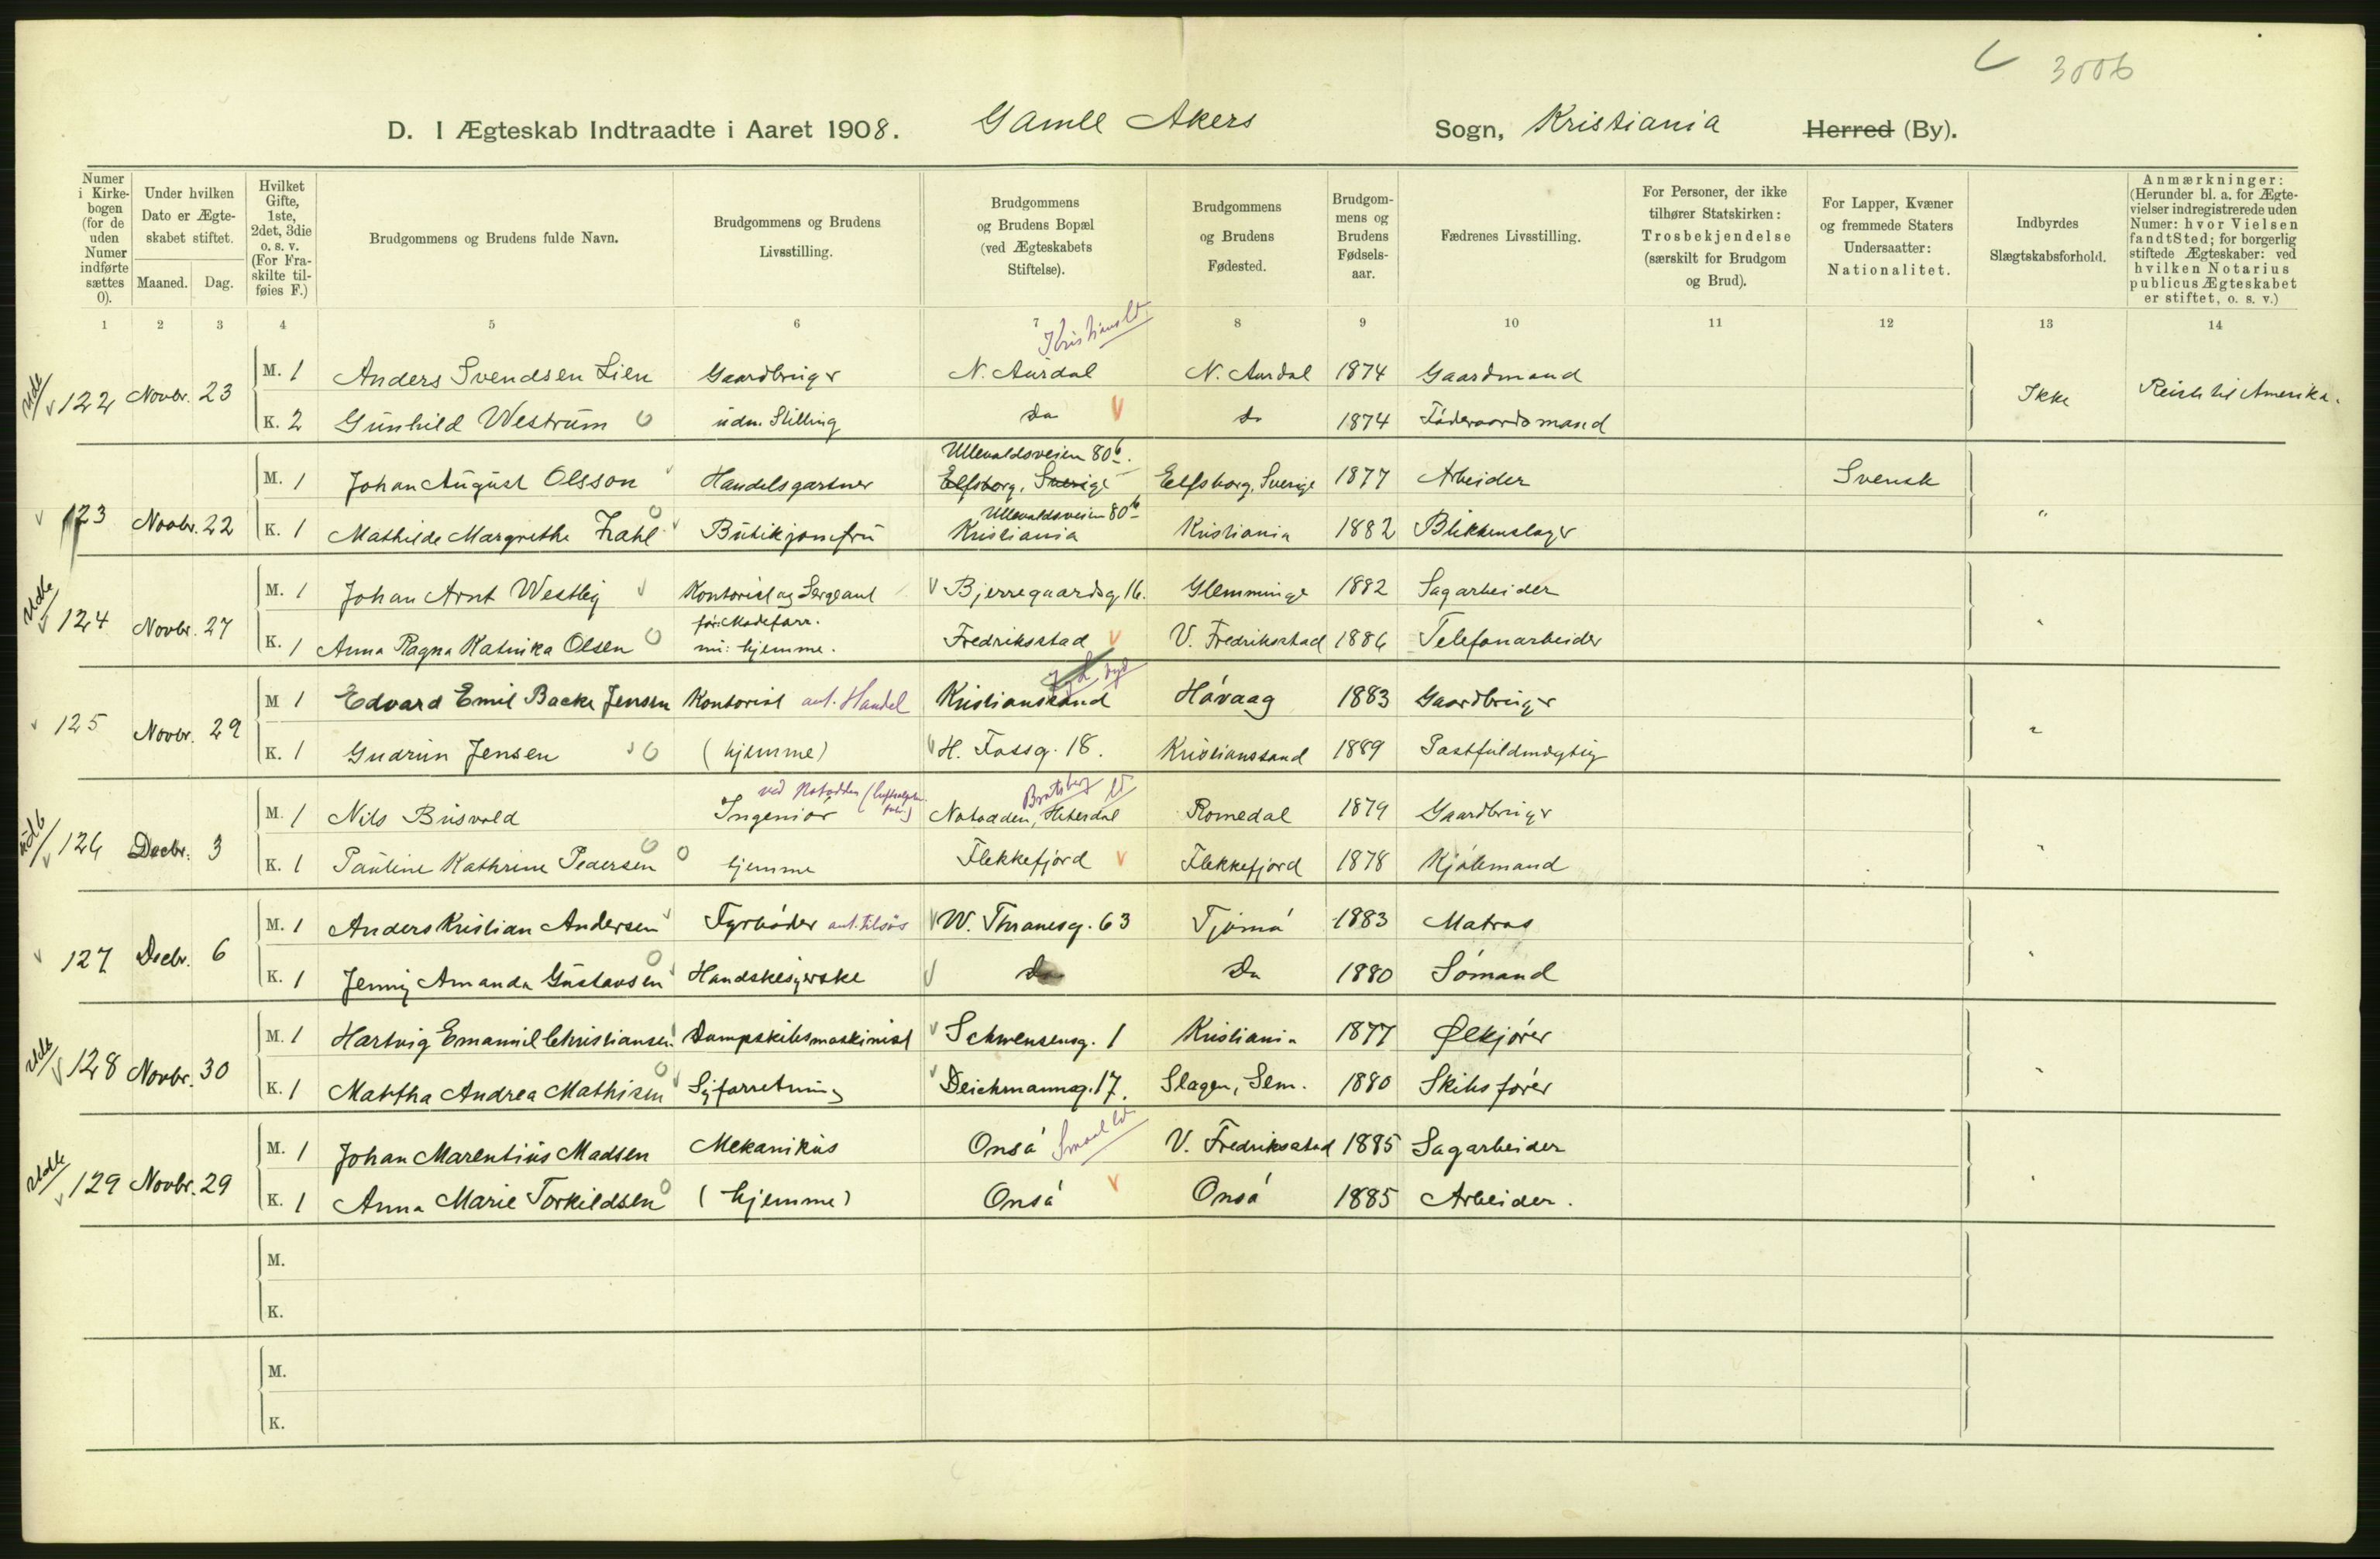 3006
D. I Ægteskab Indtraadte i Aaret 1908. Gamle Akers Sogn, Kristiania Herred (By).
Numer i Kirkebogen (for de uden Numer indførte sættes 0).
Under hvilken Dato er Ægteskabet stiftet.
Maaned. Dag.
Hvilket Gifte, 1ste, 2det, 3die o. s. v. (For Fraskilte tilføies F.)
Brudgommens og Brudens fulde Navn.
Brudgommens og Brudens Livsstilling.
Brudgommens og Brudens Bopæl (ved Ægteskabets Stiftelse).
Brudgommens og Brudens Fødested.
Brudgommens og Brudens Fødselsaar.
Fædrenes Livsstilling.
For Personer, der ikke tilhører Statskirken: Trosbekjendelse (særskilt for Brudgom og Brud).
For Lapper, Kvæner og fremmede Staters Undersaatter: Nationalitet.
Indbyrdes Slægtskabsforhold.
Anmærkninger: (Herunder bl. a. for Ægtevielser indregistrerede uden Numer: hvor Vielsen fandt Sted; for borgerlig stiftede Ægteskaber: ved hvilken Notarius publicus Ægteskabet er stiftet, o. s. v.)
1 2 3 4 5 6 7 8 9 10 11 12 13 14
Udb 122 Novbr. 23
M. 1 Anders Svendsen Lien Gaardbruger N. Aurdal N. Aurdal 1874 Gaardmand Ikke Reist til Amerika.
K. 2 Gunhild Westrum uden Stilling Do Do 1874 Föderaadsmand
Ullevaldsveien 80b.
123 Novbr. 22
M. 1 Johan August Olsson Handelsgartner Elfsborg, Sverige Elfsborg, Sverige 1877 Arbeider Svensk "
Ullevaldsveien 80b
K. 1 Mathilde Margrethe Zahl Butikjomfru Kristiania Kristiania 1882 Blikkenslager
Udb 124 Novbr. 27
M. 1 Johan Arnt Westby Kontorist og Sergeant Bjerregaardsg. 16. Glemminge 1882 Sagarbeider "
för: Modeforr.
K. 1 Anna Ragna Katinka Olsen nu: hjemme. Fredriksstad V. Fredriksstad 1886 Telefonarbeider
125 Novbr. 29
M 1 Edvard Emil Backe Jensen Kontorist ant. Handel Kristianssand Hövaag 1883 Gaardbruger "
K. 1 Gudrun Jensen (hjemme) H. Fossg. 18. Kristianssand 1889 Postfuldmægtig
ved Notodden Bratsberg
Udb 126 Decbr. 3
M. 1 Nils Busvold Ingeniör Notodden, Hiterdal Romedal 1879 Gaardbruger "
K. 1 Pauline Kathrine Pedersen hjemme Flekkefjord Flekkefjord 1878 Kjölemand
127 Decbr. 6
M. 1 Anders Kristian Andersen Fyrböder ant. tilsös W. Thranesg. 63 Tjömö 1883 Matros "
K. 1 Jenny Amanda Gustavsen Handskesyerske Do Do 1880 Sömand
Udb 128 Novbr. 30
M. 1 Hartvig Emanuel Christiansen Dampskibsmaskinist Schwensensg. 1 Kristiania 1877 Ølkjörer "
K. 1 Martha Andrea Mathisen Syforretning Deichmannsg. 17. Slagen, Sem. 1880 Skibsförer
Udb 129 Novbr. 29
M. 1 Johan Marentius Madsen Mekanikus Onsö V. Fredriksstad 1885 Sagarbeider "
K. 1 Anna Marie Torkildsen (hjemme) Onsö Onsö 1885 Arbeider.
M.
K.
M.
K.